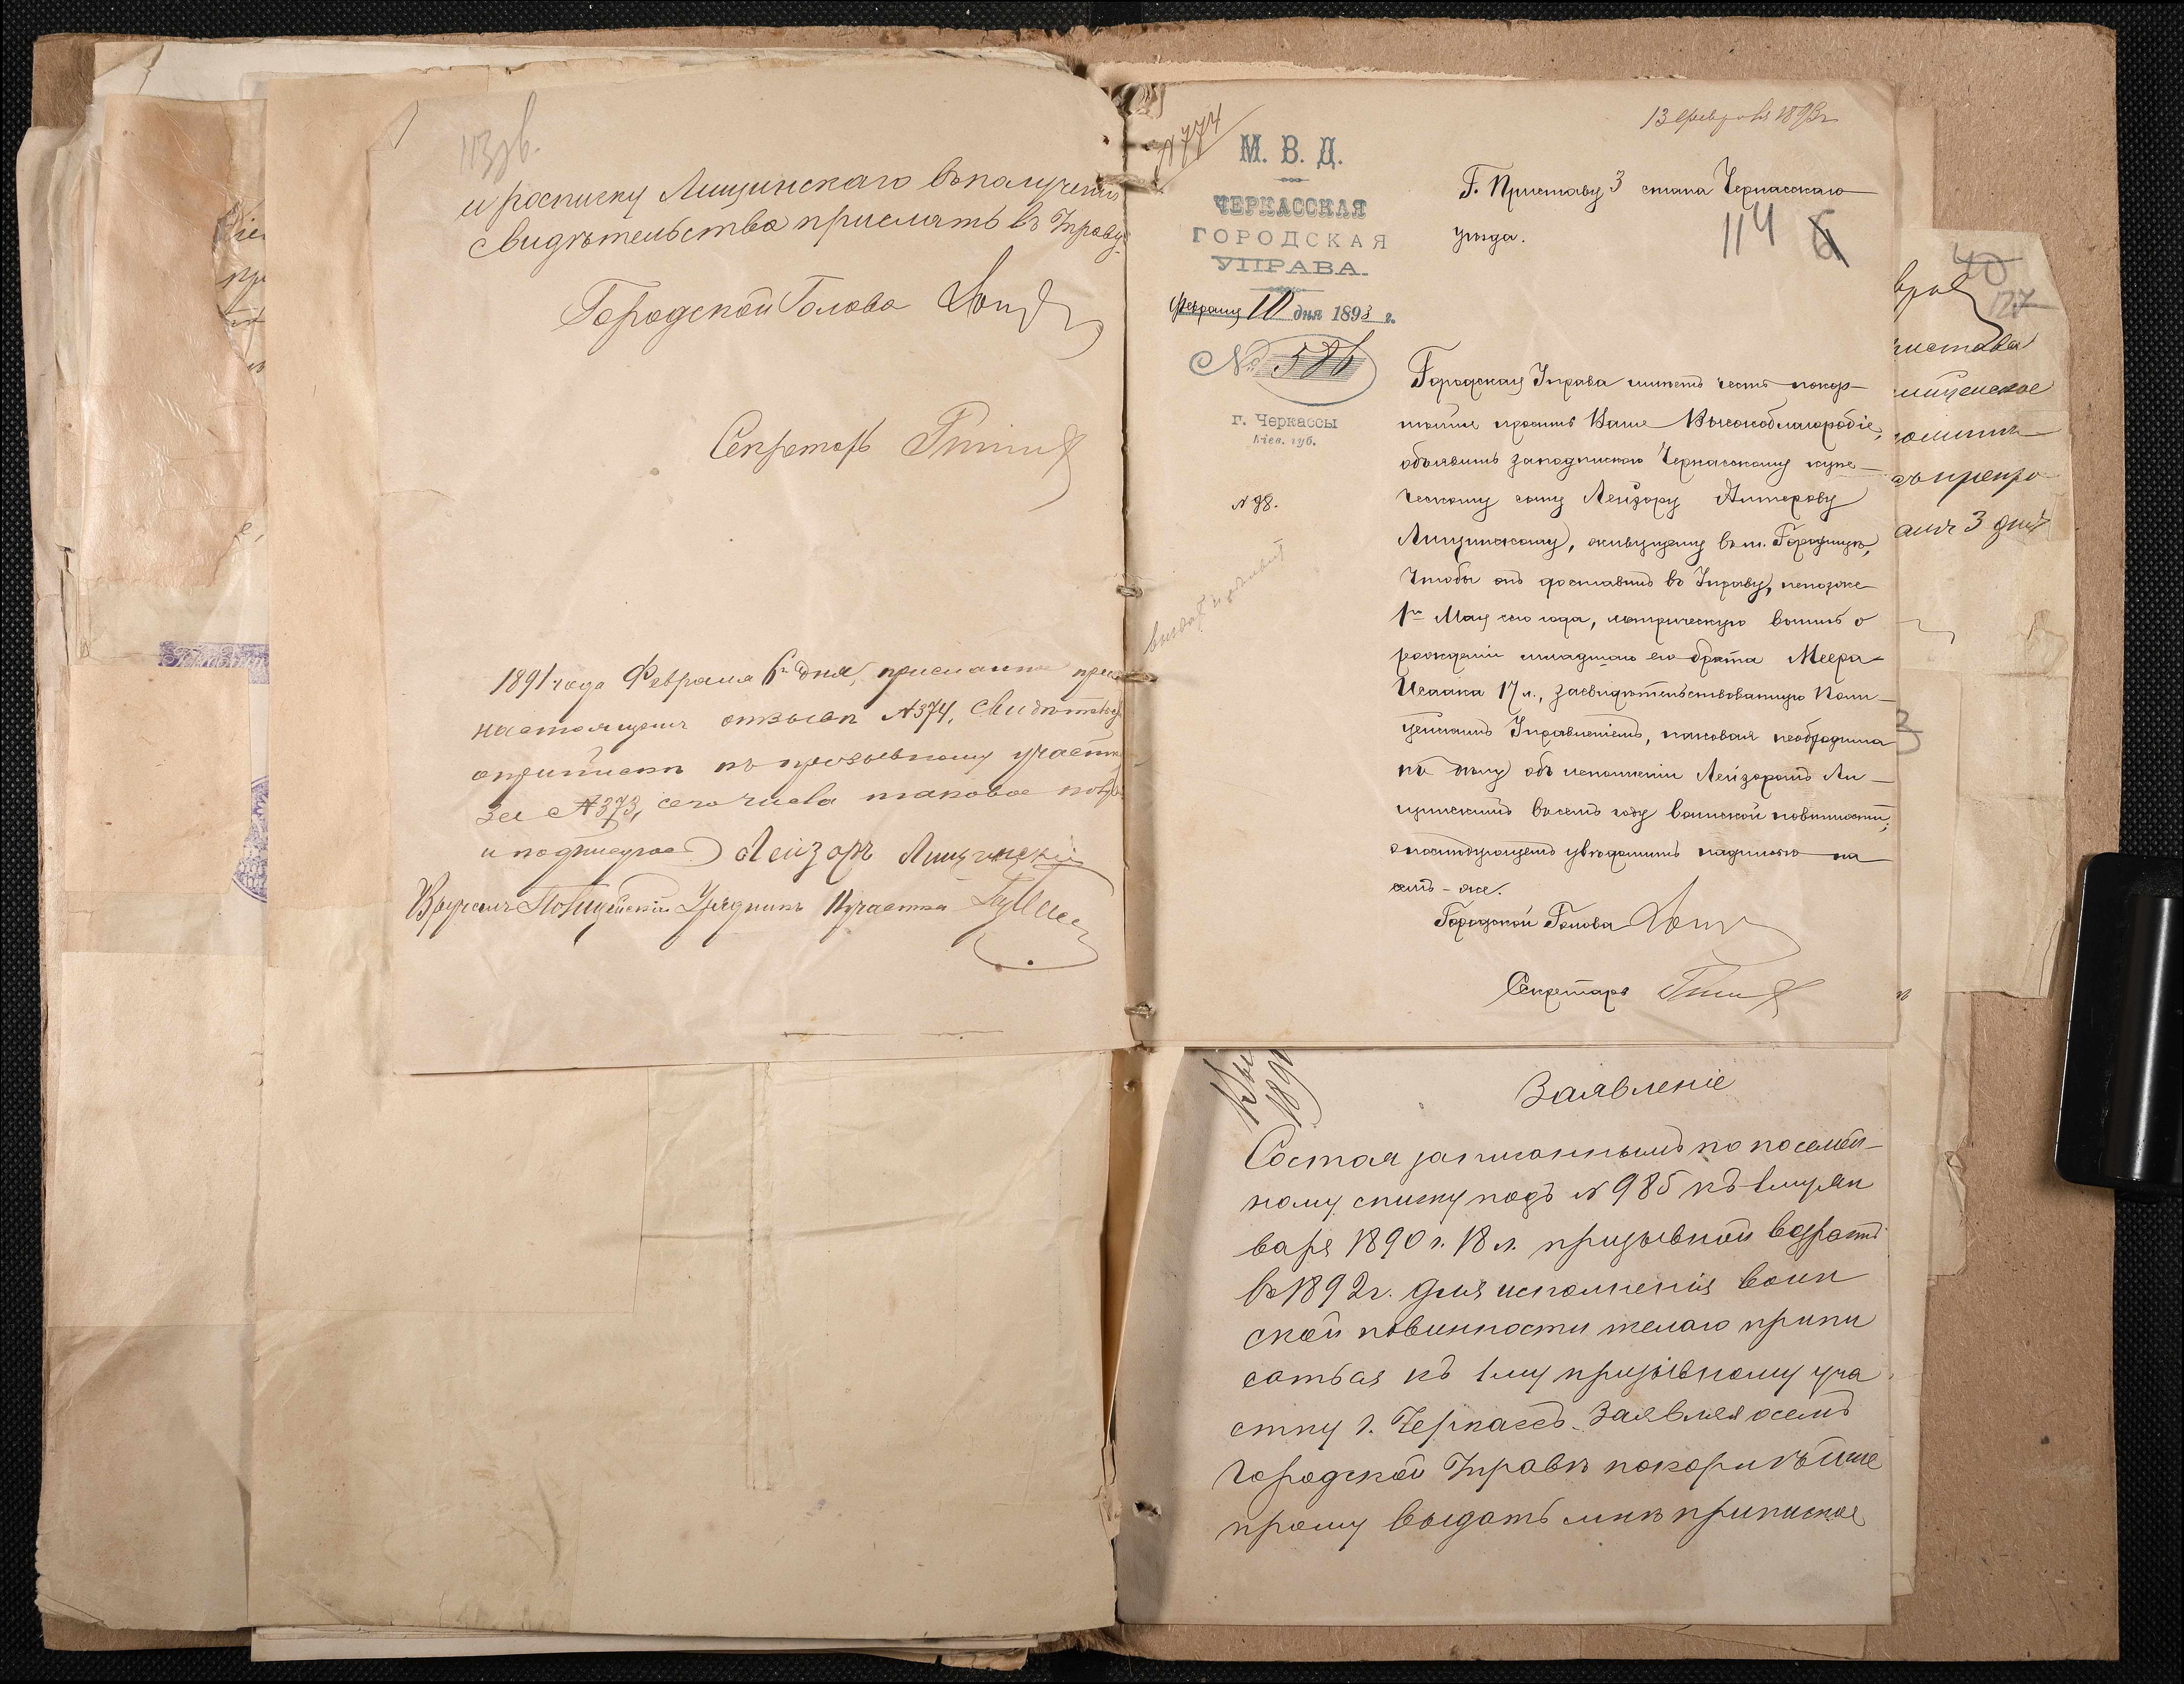 113об.
и росписку Лищинскаго въ получении
свидѣтельства прислать въ Управу.
Городской Голова
Секретарь
1891 года Февраля 6го дня, присланное при
настоящемъ отзывѣ №374, свидѣтельст
о припискѣ къ призывному участк
за №373, сего числа таковое получ
и подписуюсь Лейзоръ Лищинскій
Вручилъ Полицейскій Урядникъ 11 участка
№774
М. В. Д.
ЧЕРКАССКАЯ
ГОРОДСКАЯ
УПРАВА.
Февраля 10 дня 1893 г.
№ 586
г. Черкассы
Кіев. губ.
№ 98.
13 февраля 1893г
Г. Приставу 3 стана Черкасскаго
уѣзда.
114
Городская Управа имѣетъ честь покор-
нѣйше просить Ваше Высокоблагородіе,
объявить заподпискою Черкасскому купе-
ческому сыну Лейзору Алтерову
Лищинскому, живущему въ м. Городищѣ,
чтобы онъ доставилъ въ Управу, непозже
1го Мая сего года, метрическую выпись о
рожденіи младшаго его брата Меера-
Исаака 17 л., засвидѣтельствованную Поли-
цейскимъ Управленіемъ, каковая необходима
къ дѣлу объ исполненіи Лейзоромъ Ли-
щинскимъ въ семъ году воинской повинности;
о послѣдующемъ увѣдомить надписью на
семъ-же.
Городской Голова
Секретарь
Заявленіе
Состоя записаннымъ по посемей-
ному списку подъ №985 къ 1му Ян
варя 1890 г. 18 л. призывной возрастъ
въ 1892г. для исполненія воин
ской повинности желаю припи
саться къ 1му призывному уча
стку г. Черкассъ. Заявляя о семъ
Городской Управѣ покорнѣйше
прошу выдать мнѣ приписное
40
127
пристава
3 дня